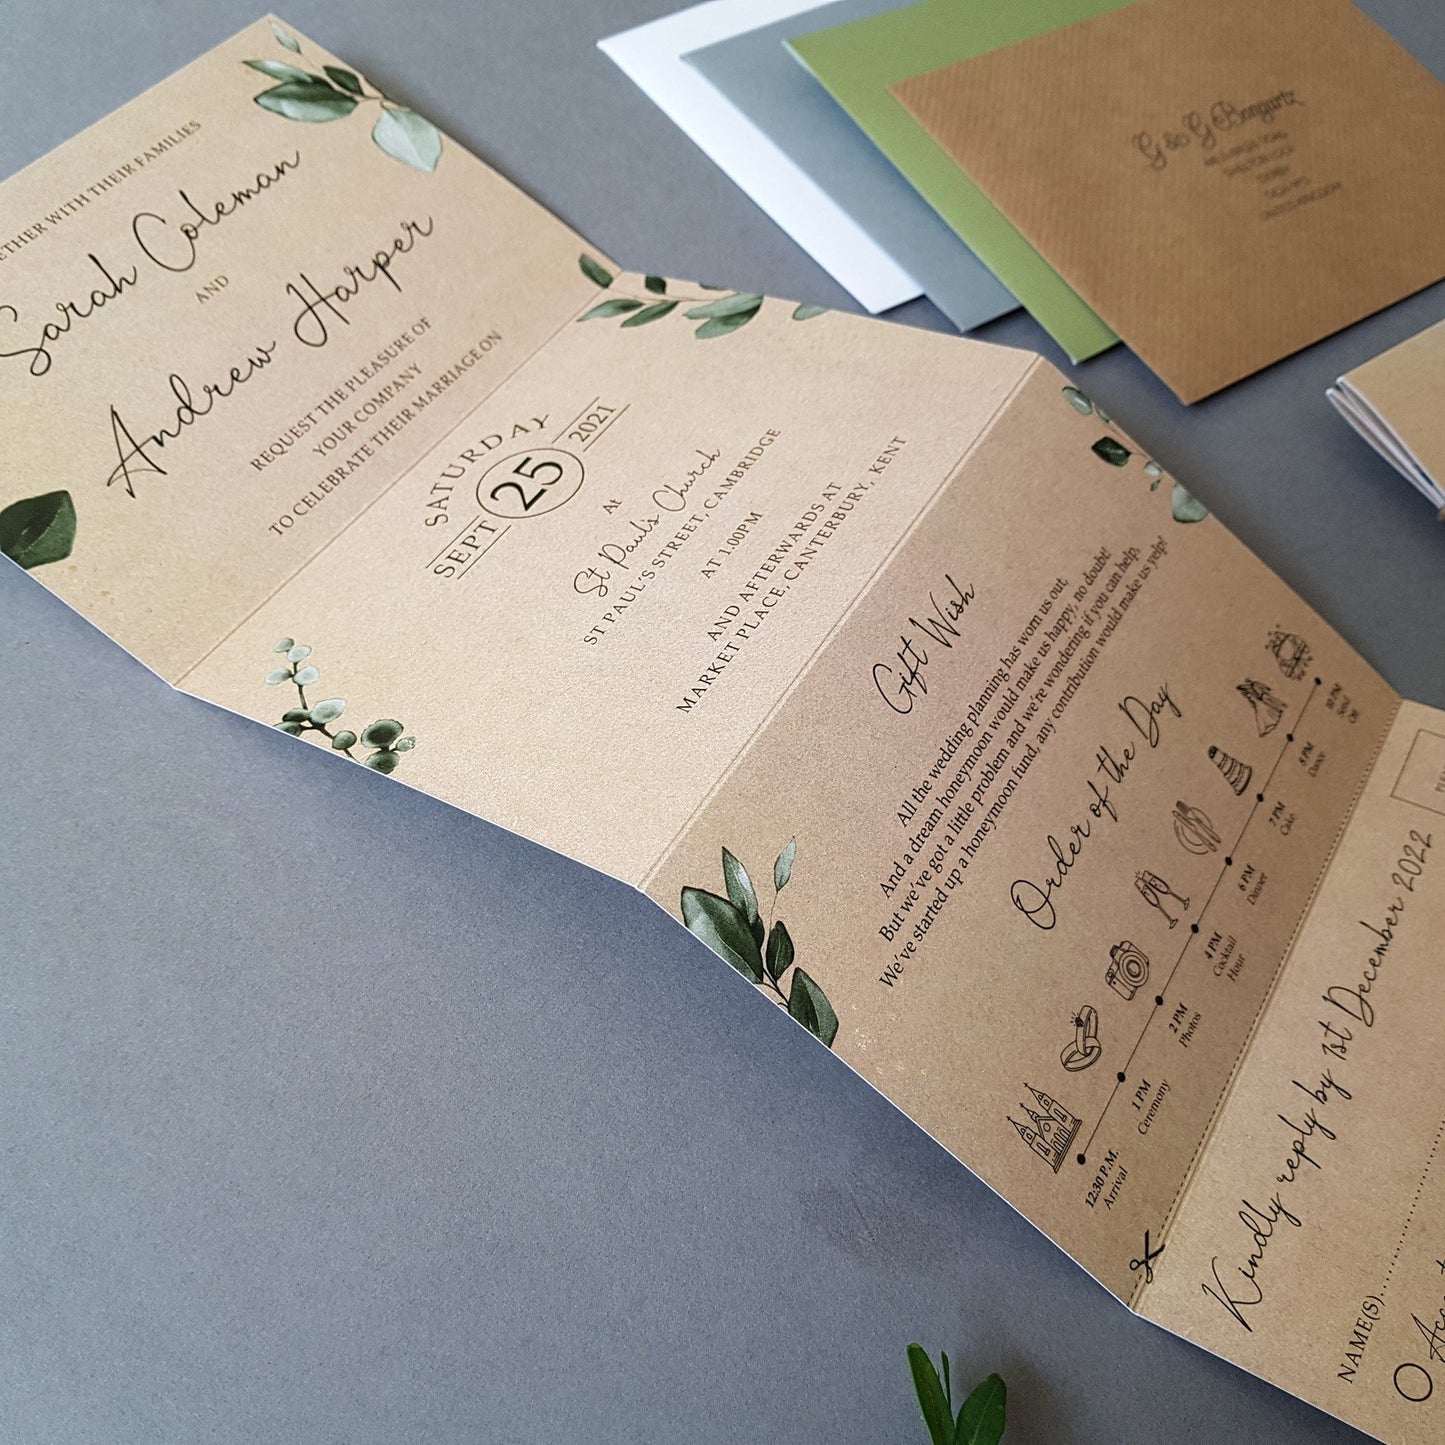 WITH THEIR FAMILIES
Sarah Coleman
AND
Andrew Harper
REQUEST THE PLEASURE OF
YOUR COMPANY
TO CELEBRATE THEIR MARRIAGE ON
SATURDAY
SEPT 25 2021
At
St Paul's Church
ST PAUL'S STREET, CAMBRIDGE
AT 1.00PM
AND AFTERWARDS AT
MARKET PLACE, CANTERBURY, KENT
Gift Wish
All the wedding planning has worn us out,
And a dream honeymoon would make us happy, no doubt!
But we've got a little problem and we're wondering if you can help,
We've started up a honeymoon fund, any contribution would make us yelp!
Order of the Day
12:30 P.M.
Arrival
1 PM
Ceremony
2 PM
Photos
4 PM
Cocktail
Hour
6 PM
Dinner
7 PM
Cake
8 PM
Dance
10 PM
Send
Off
Kindly reply by 1st December 2022
NAME(S)
G & G Bongartz